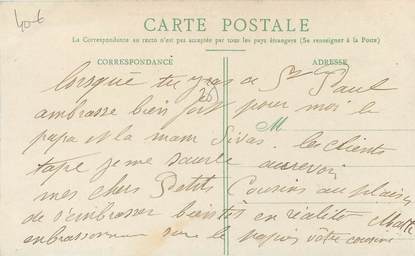 406
CARTE POSTALE
La Correspondance au recto n'est pas acceptée par tous les pays étrangers (Se renseigner à la Poste)
CORRESPONDANCE ADRESSE
lorsque tu iras de St Paul
20
ambrasse bien fort pour moi le
M
papa et la mam les clients
tape je me sauve aurevoir
mes chers Petits Cousins au plaisir
de s'embrasser bientôt en réalité
sur le papier vôtre cousine